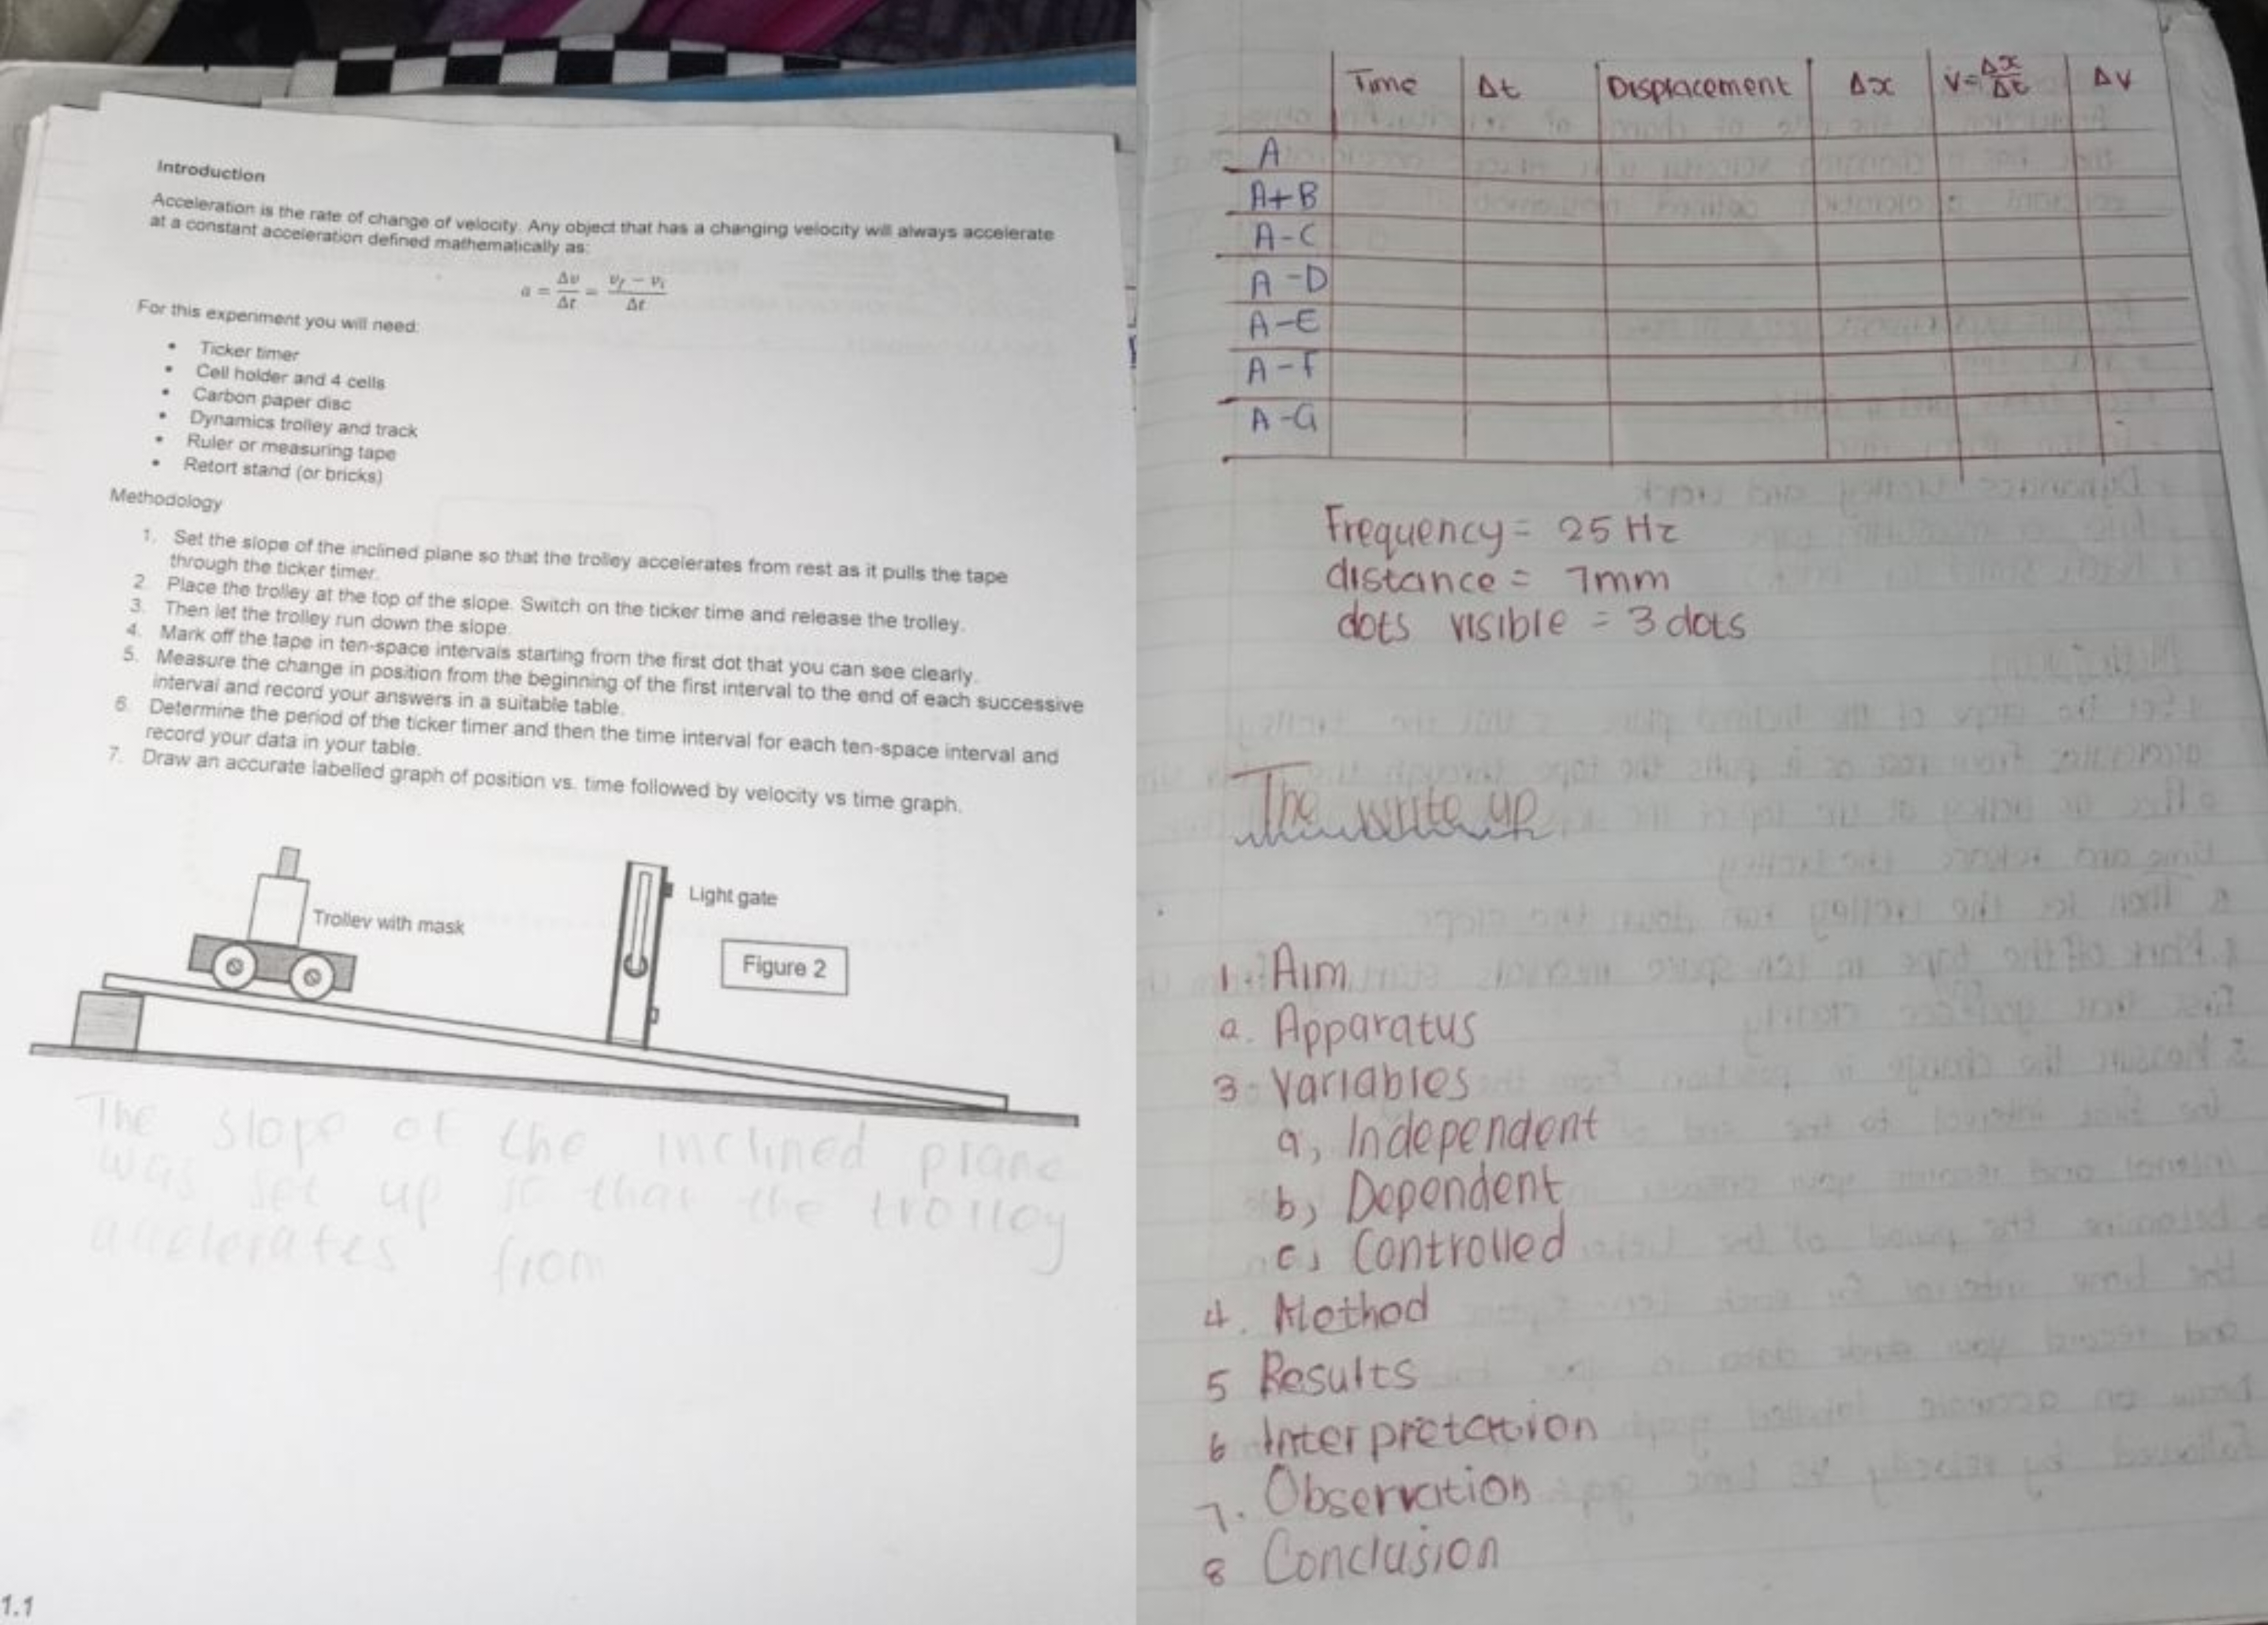 Introduction
Acceleration is the rate of change of velocity. Any object that has a changing velocity will always accelerate
at a constant acceleration defined mathematically as:
a = Δv/Δt = (vf − vi)/Δt
For this experiment you will need:
• Ticker timer
• Cell holder and 4 cells
• Carbon paper disc
• Dynamics trolley and track
• Ruler or measuring tape
• Retort stand (or bricks)
Methodology
1. Set the slope of the inclined plane so that the trolley accelerates from rest as it pulls the tape
through the ticker timer.
2. Place the trolley at the top of the slope. Switch on the ticker time and release the trolley.
3. Then let the trolley run down the slope.
4. Mark off the tape in ten-space intervals starting from the first dot that you can see clearly.
5. Measure the change in position from the beginning of the first interval to the end of each successive
interval and record your answers in a suitable table.
6. Determine the period of the ticker timer and then the time interval for each ten-space interval and
record your data in your table.
7. Draw an accurate labelled graph of position vs. time followed by velocity vs time graph.
Trolley with mask
Light gate
Figure 2
The slope of the inclined plane
was set up so that the trolley
accelerates from
1.1
Time Δt Displacement Δx v=Δx/Δt Δv
A
A+B
A-C
A-D
A-E
A-F
A-G
Frequency = 25 Hz
distance = 7mm
dots visible = 3 dots
The write up
1. Aim
2. Apparatus
3. Variables
a, Independent
b, Dependent
c, Controlled
4. Method
5 Results
6 Interpretation
7. Observation
8 Conclusion